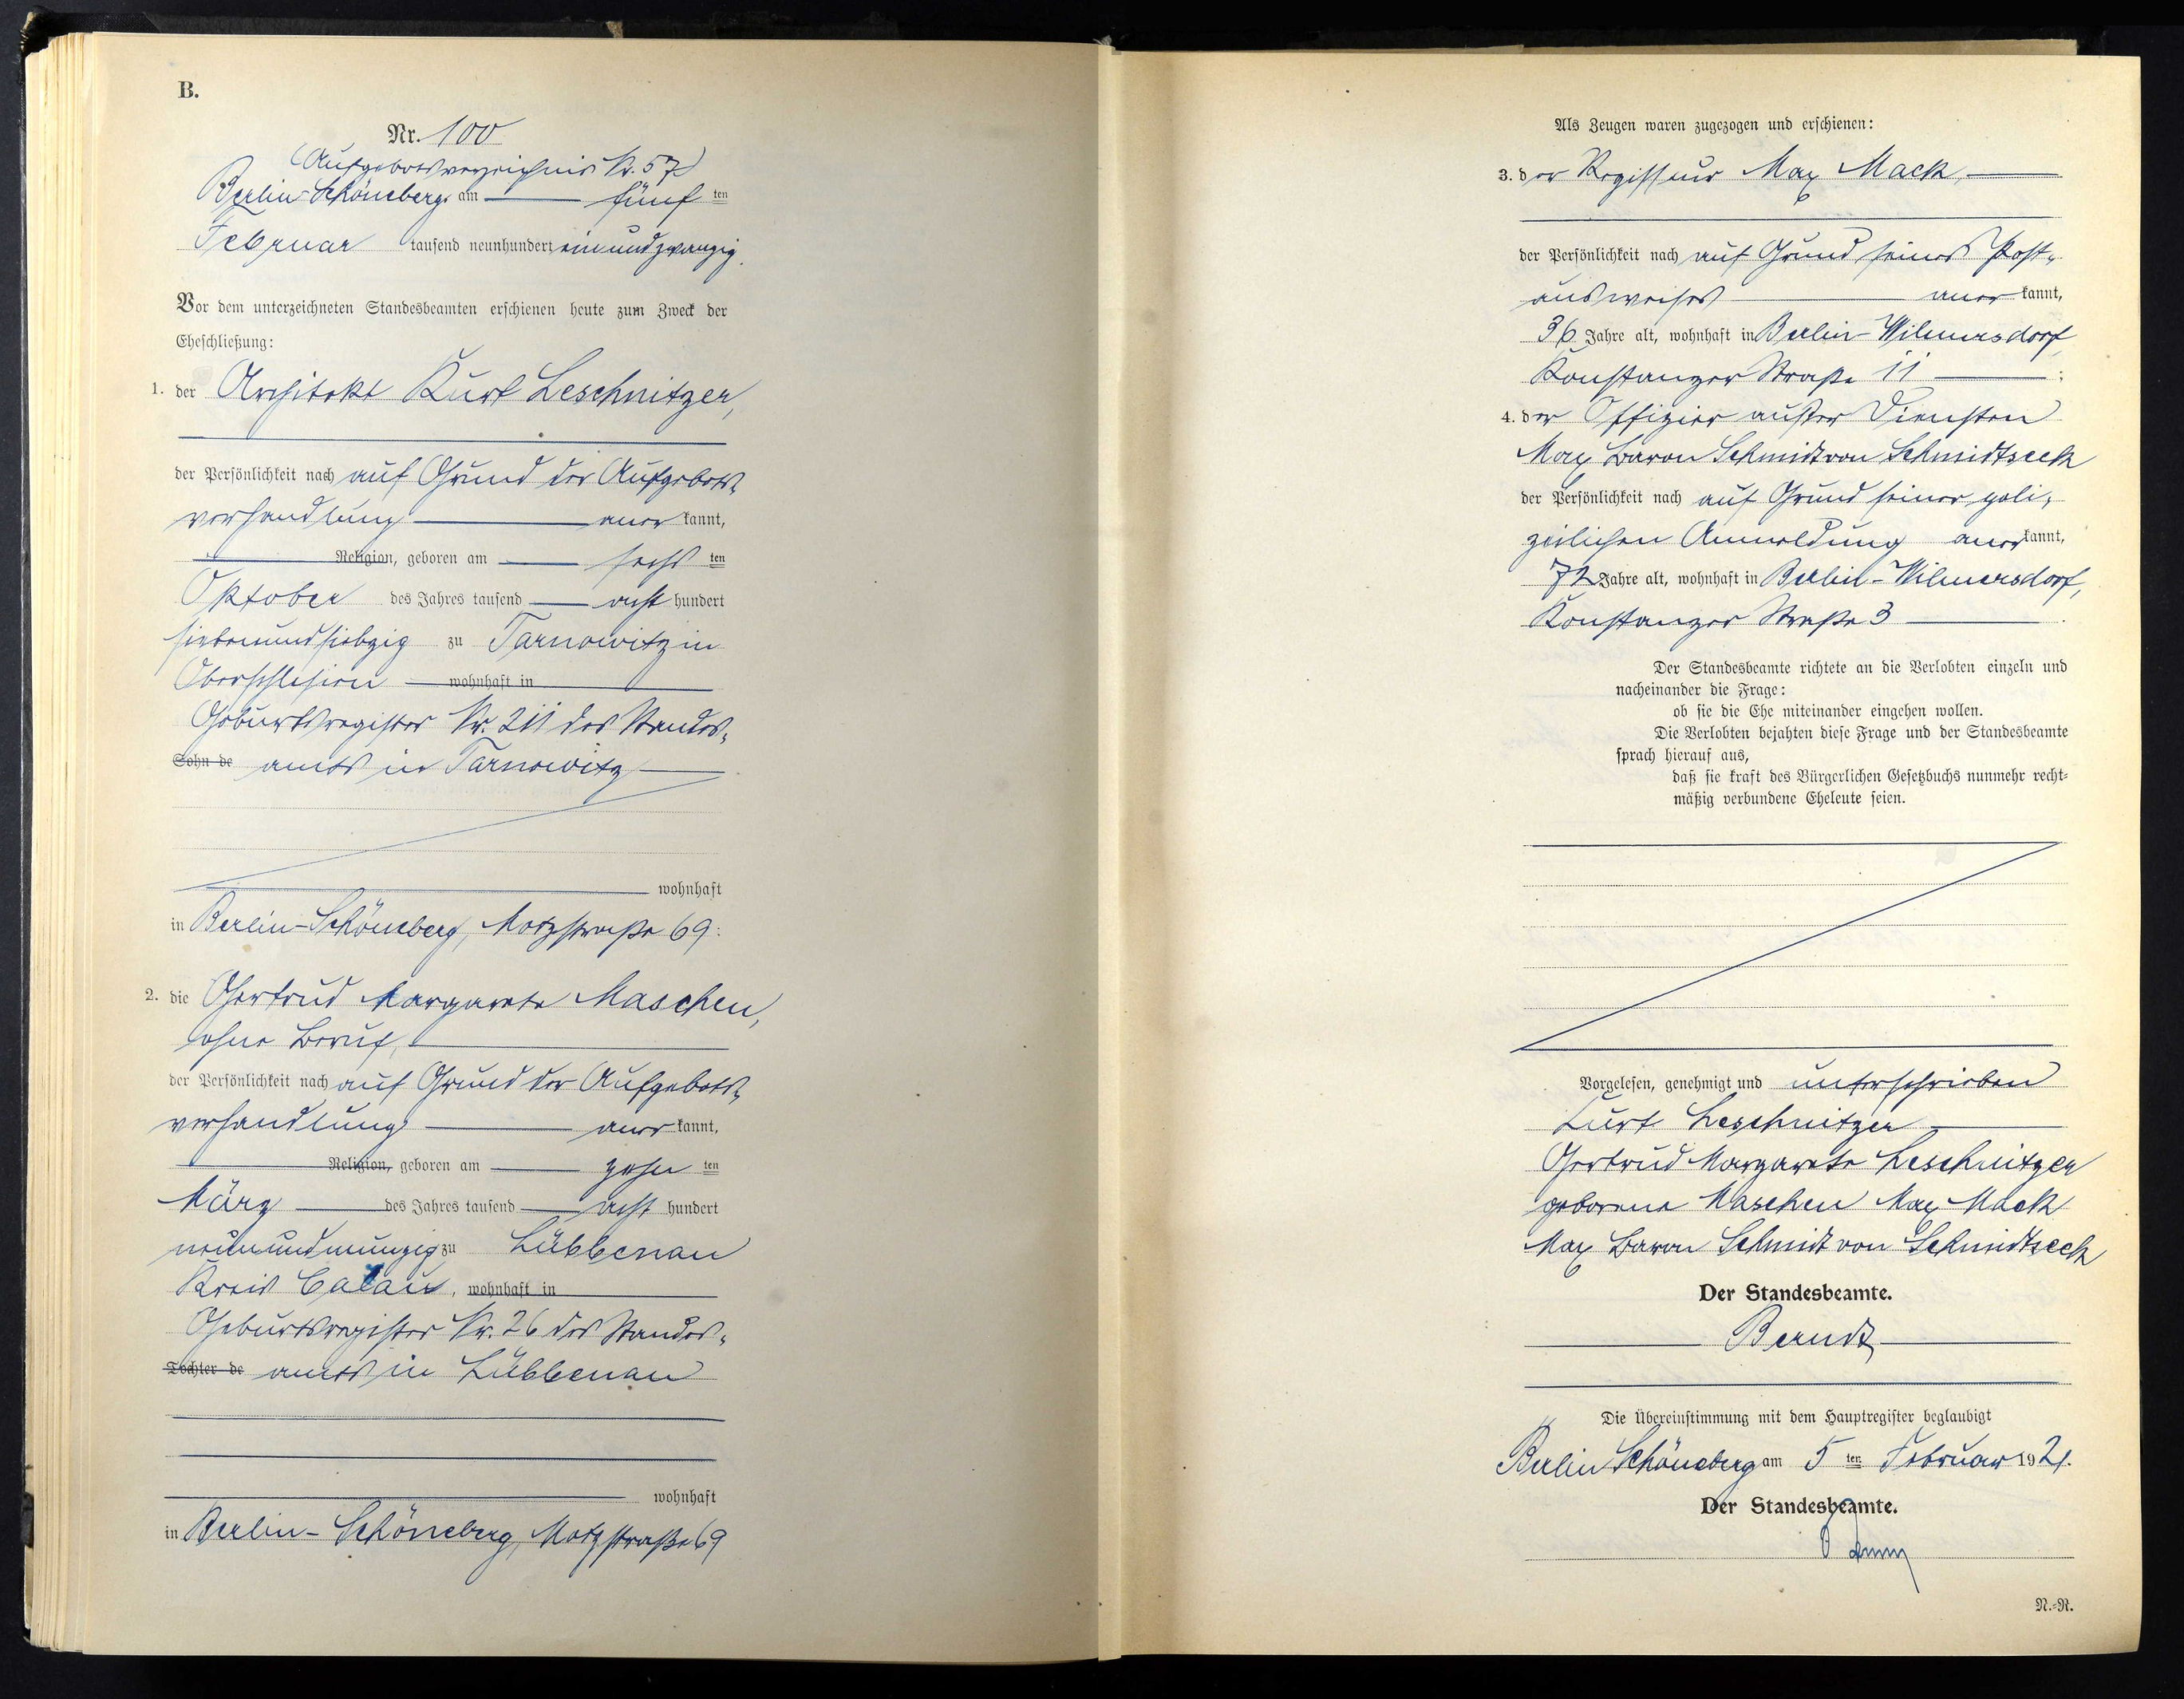 B.
Nr. 100
(Aufgebotsverzeichnis Nr. 57)
Berlin-Schöneberg, am fünf ten
Februar tausend neunhundert einundzwanzig.
Vor dem unterzeichneten Standesbeamten erschienen heute zum Zweck der
Eheschließung:
1. der Architekt Kurt Leschnitzer,
der Persönlichkeit nach auf Grund der Aufgebots-
verhandlung aner kannt,
Religion, geboren am sechs ten
Oktober des Jahres tausend acht hundert
siebenundsiebzig zu Tarnowitz in
Oberschlesien wohnhaft in
Geburtsregister Nr. 211 des Standes-
Sohn de amts in Tarnowitz
wohnhaft
in Berlin-Schöneberg, Motzstraße 69:
2. die Gertrud Margarete Maschen,
ohne Beruf,
der Persönlichkeit nach auf Grund der Aufgebots-
verhandlung aner kannt,
Religion, geboren am zehn ten
März des Jahres tausend acht hundert
neunundneunzig zu Lübbenau
Kreis Calau, wohnhaft in
Geburtsregister Nr. 26 des Standes-
Tochter de amts in Lübbenau
wohnhaft
in Berlin-Schöneberg, Motzstraße 69
Als Zeugen waren zugezogen und erschienen:
3. der Regisseur Max Mack,
der Persönlichkeit nach auf Grund seines Post-
ausweises aner kannt,
36 Jahre alt, wohnhaft in Berlin-Wilmersdorf,
Konstanzer Straße 11;
4. der Offizier außer Diensten
Max Baron Schmidt von Schmidtseck
der Persönlichkeit nach auf Grund seiner poli-
zeilichen Anmeldung aner kannt,
72 Jahre alt, wohnhaft in Berlin-Wilmersdorf,
Konstanzer Straße 3.
Der Standesbeamte richtete an die Verlobten einzeln und
nacheinander die Frage:
ob sie die Ehe miteinander eingehen wollen.
Die Verlobten bejahten diese Frage und der Standesbeamte
sprach hierauf aus,
daß sie kraft des Bürgerlichen Gesetzbuchs nunmehr recht-
mäßig verbundene Eheleute seien.
Vorgelesen, genehmigt und unterschrieben
Kurt Leschnitzer
Gertrud Margarete Leschnitzer
geborene Maschen Max Mack
Max Baron Schmidt von Schmidtseck
Der Standesbeamte.
Berndt
Die Übereinstimmung mit dem Hauptregister beglaubigt
Berlin Schöneberg am 5 ten Februar 1921.
Der Standesbeamte.
N.-R.